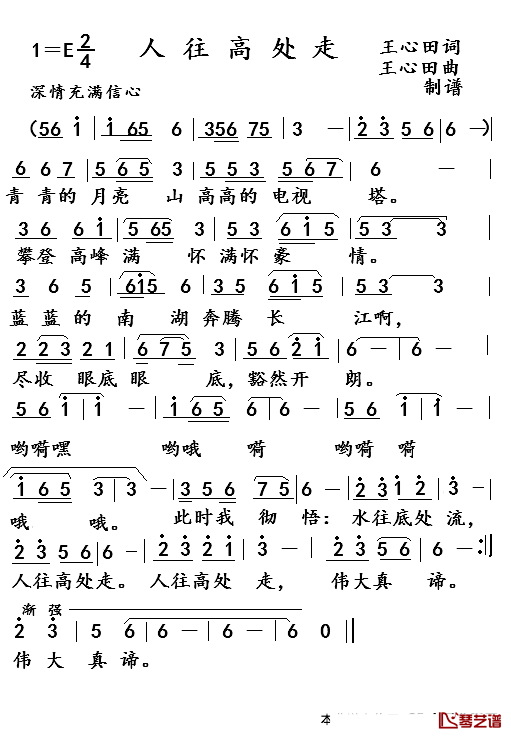 1=E 2/4 人往高处走 王心田词
王心田曲
制谱
深情充满信心
(56 i | i 65 6 | 356 75 | 3 — | 2̇ 3̇ 5 6 | 6 —)|
6 6 7 | 5 6 5 3 | 5 5 3 | 5 6 7 | 6 — |
青青的月亮 山高高的电视 塔。
3 6 6 i | 5 65 3 | 5 5 3 3 | 6 i 5 | 5 3 3 |
攀登高峰满 怀满怀豪 情。
3 6 5 | 6i5 6 | 3 5 | 6 i 5 | 5 3 3 |
蓝蓝的南 湖奔腾长 江啊,
2 2 3 2 1 | 6 7 5 | 5 6 2̇ i | 6 — | 6 — |
尽收眼底眼 底,豁然开 朗。
5 6 i | i — | i 6 5 | 6 — | 5 6 i | i — |
哟嗬嘿 哟哦 嗬 哟嗬 嗬
i 6 5 | 3 3 | — | 3 5 6 | 7 5 | 6 — | 2̇ 3̇ i 2̇ | 3̇ — |
哦 哦。 此时我 彻 悟:水往底处 流,
2̇ 3̇ 5 6 | 6 — | 2̇ 3̇ 2̇ i | 3̇ — | 2̇ 3̇ 5 6 | 6 — :||
人往高处走。人往高处 走, 伟大真 谛。
渐 强
2̇ 3̇ | 5 6 | 6 — | 6 — | 6 0 ||
伟大真 谛。
本
琴艺谱